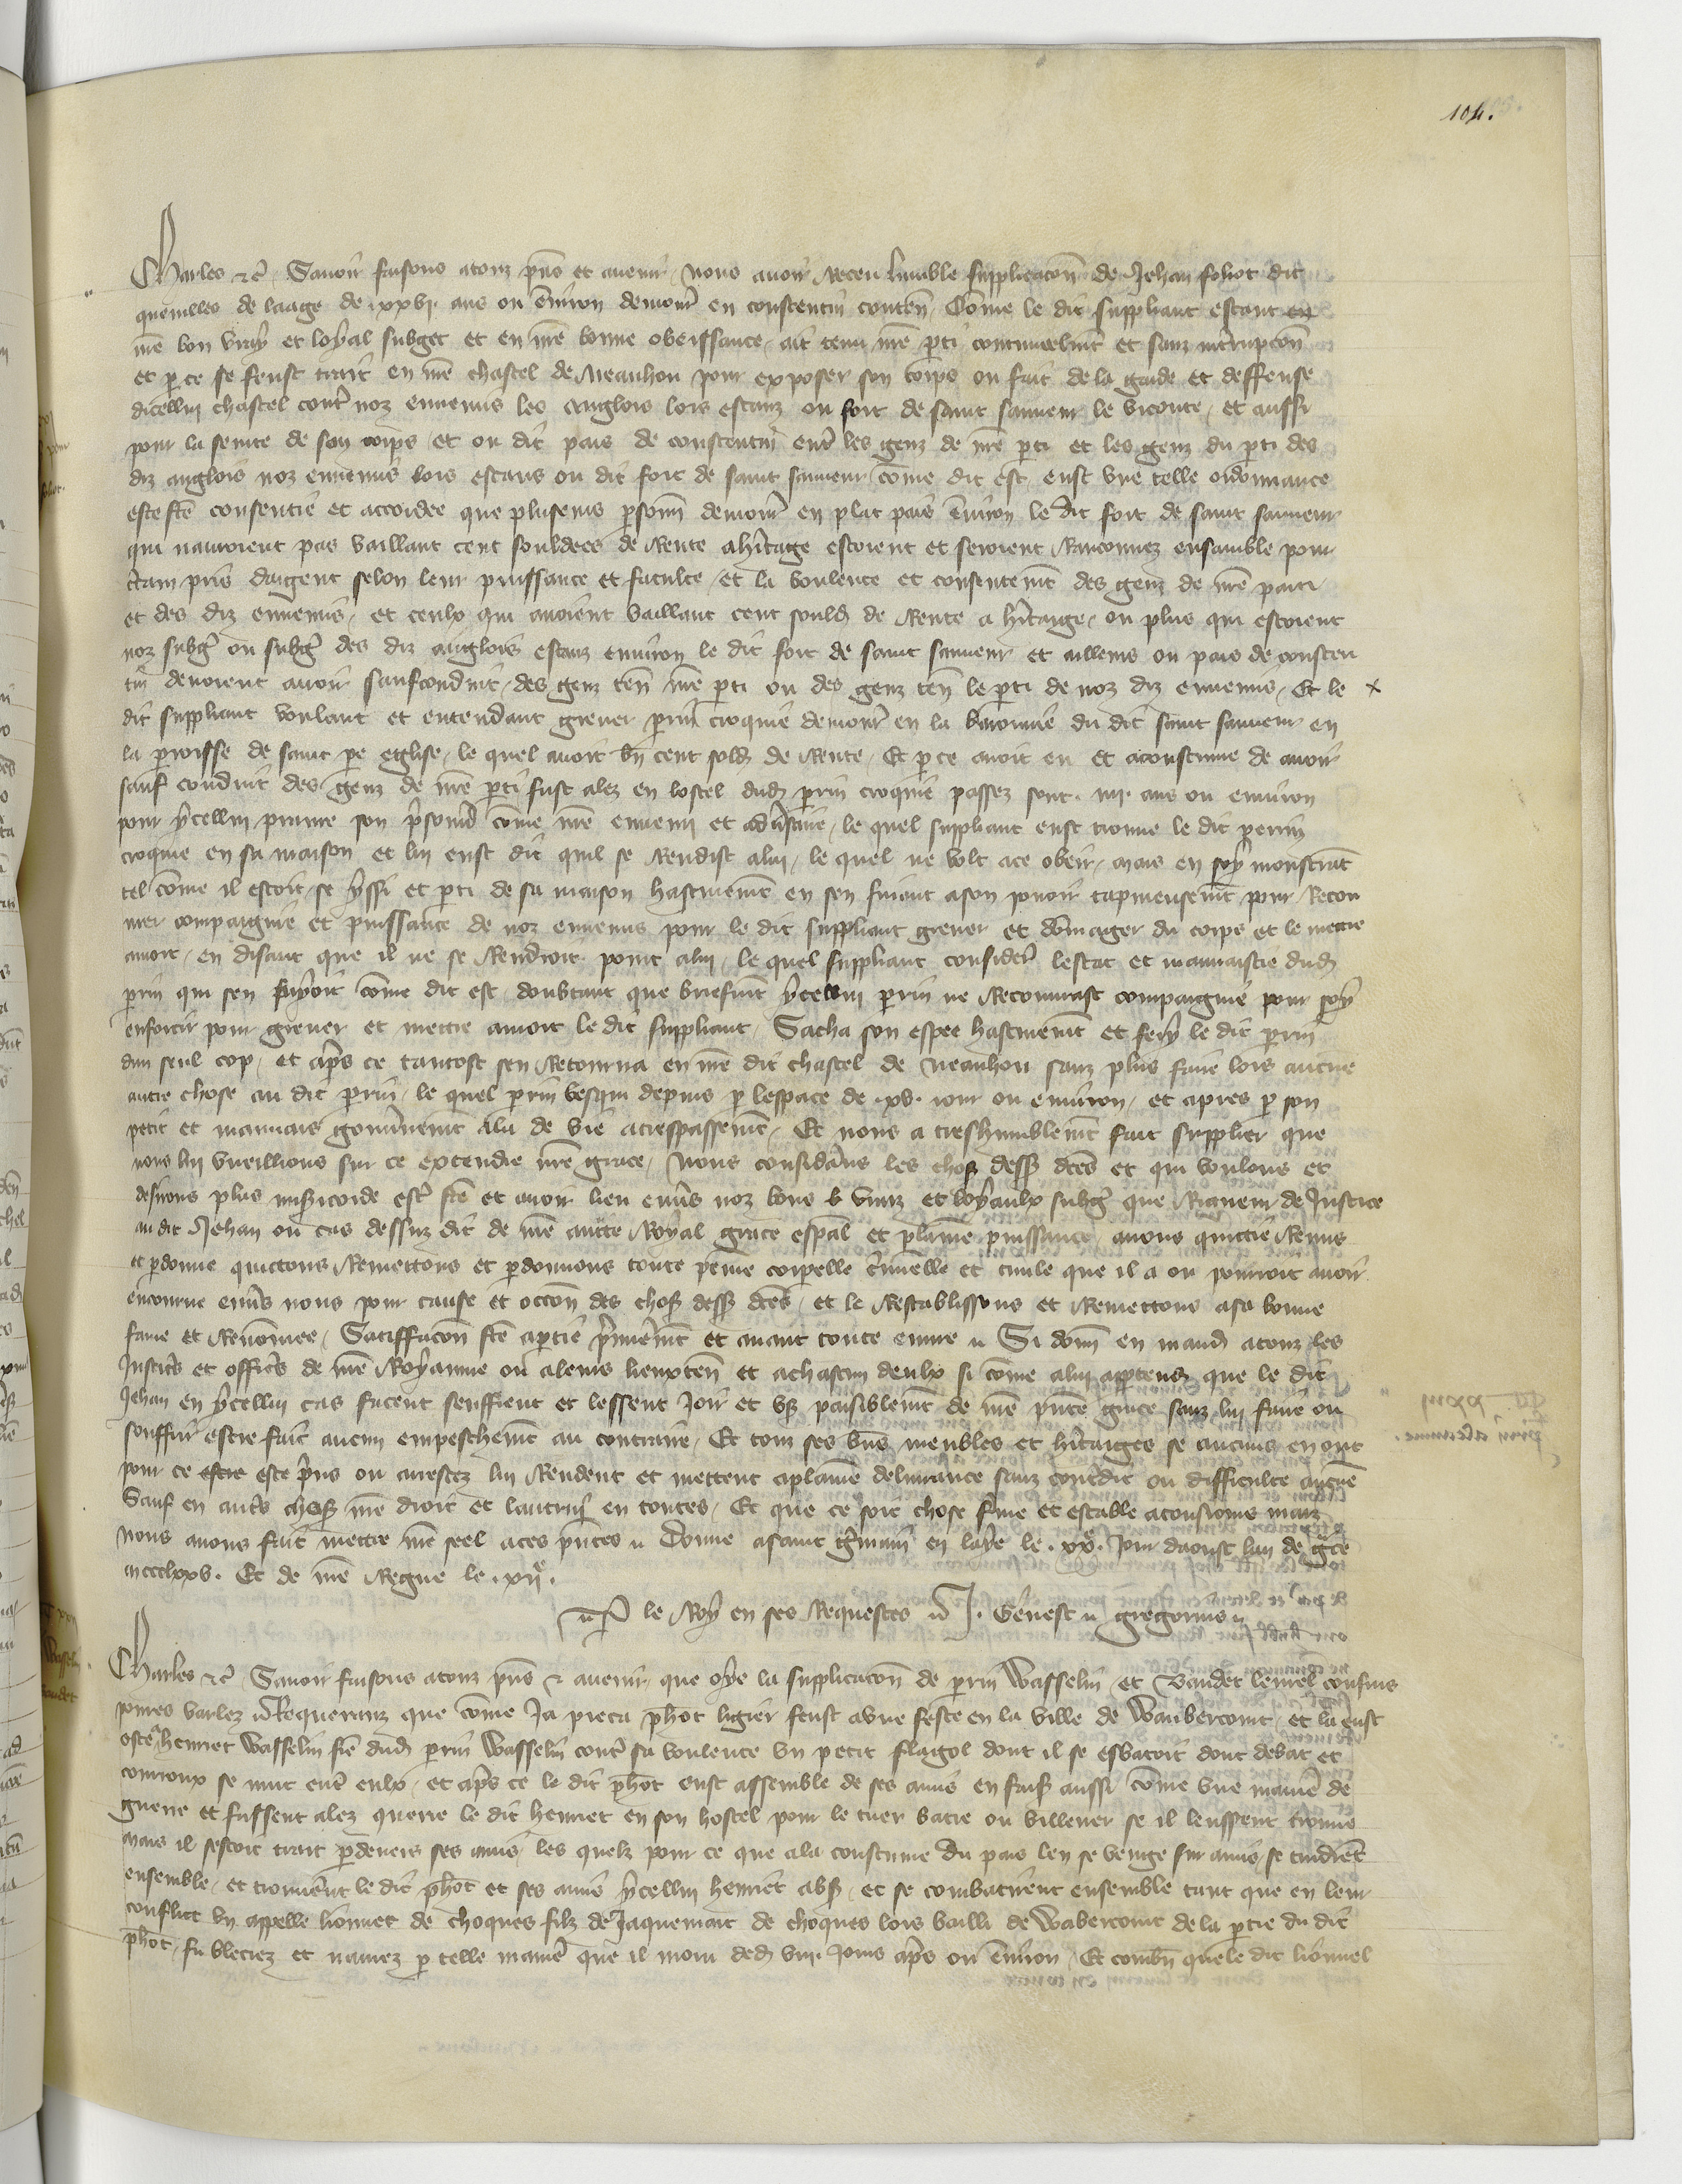 104.
Charles etc. Savoir faisons a touz pñs et avenir, nous avoir receu humble supplicacoñ de Jehan foliot dit
quenilles de laage de .xxvi. ans ou environ demour en constentin conteñ, Cõme le dit suppliant estant en
nrẽ bon vray et loyal subget et en nrẽ bonne obeissance, ait tenu nrẽ pti continuelmt et sanz intrrupcoñ
et p ce se feust trait en nrẽ chastel de Neauhou pour exposer son corps ou fait de la garde et deffense
dicellui chastel contr noz ennemis les Anglois lors estanz ou fort de saint sauveur le viconte, et aussi
pour la seurte de son corps et ou dit pais de constentin entr les genz de nrẽ pti et les genz du pti des
diz anglois noz ennemis lors estans ou dit fort de saint sauveur cõme dit est, eust une telle ordonnance
este ftẽ consentie et accordee que pluseurs psonñ demour en plat pais environ le dit fort de saint sauveur
qui nauroient pas vaillant cent souldees de Rente a hitage estoient et seroient Ranconnez ensamble pour
ctain pris dargent selon leur puissance et faculte, et la voulente et consentemt des genz de nrẽ parti
et des diz ennemis, et ceulx qui avoient vaillant cent sould de Rente a hitaige, ou plus qui estoient
noz subgz ou subgz des diz anglois estanz environ le dit fort de saint sauveur et ailleurs ou pais de consten
tin devoient avoir saufconduit, des genz teñ nrẽ pti ou des genz teñ le pti de noz diz ennemis, Et le x
dit suppliant voulant et entendant grever prin croquie demour en la baronnie du dit saint sauveur en
la proisse de saint pe eglise, le quel avoit bñ cent sold de Rente, Et p ce avoit eu et acoustume de avoir
sauf conduit des genz de nrẽ pti fust alez en lostel dud prin croquie passez sont .iii. ans ou environ
pour ycellui pranre son prsonnier cõme nrẽ ennemi et adusaire, le quel suppliant eust trouve le dit perrin
croquie en sa maison et lui eust dit quil se Rendist a lui, le quel ne volt a ce obeir, mais en soy monstrat
tel cõme il estoit, se yssi et pti de sa maison hastivemt en sen fuiant a son pouoir tapineusemt pour Recou
vrer compaignie et puissance de noz ennemis pour le dit suppliant grever et dõmager du corps et le mettre
a mort, en disant que il ne se Rendroit point a lui, le quel suppliant considere lestat et mauvaistie dud
prin qui sen fuyoit cõme dit est, doubtant que briefmt ycellui prin ne Recouvrast compaignie pour soy
enforcir pour grever et mettre a mort le dit suppliant, Sacha son espee hastivemt et fery le dit prin
dun seul cop, et aprs ce tantost sen Retourna en nrẽ dit chastel de Neauhou sanz plus faire lors aucune
autre chose au dit prin, le quel prin vesqui depuis p lespace de .xv. jour ou environ, et apres p son
petit et mauvais gouvnemt ala de vie a trespassemt, Et nous a treshumblemt fait supplier que
nous lui vueillions sur ce extendre nrẽ grace, Nous considans les chos dess dcẽs et qui voulons et
desirons plus misicorde estr ftẽ et avoir lieu envs noz bons et vraiz et loyaulx subgz que Rigueur de Justice
au dit Jehan ou cas dessuz dit de nrẽ aucte Royal grace espal et plainne puissance avons quittie Remis
et pdonne quictons Remettons et pdonnons toute peinne corpelle cimelle et civile que il a ou pourroit avoir
encourue envs nous pour cause et occoñ des chos dess dcẽs, et le Restablissons et Remettons a sa bonne
fame et Renõmee, Satiffacoñ ftẽ a ptie primemt et avant toute euvre. Si donñ en mand a touz les
Justics et offics de nrẽ Royaume ou a leurs lieuxteñ et a chascun deulx si cõme a lui apptendr que le dit
Jehan en ycellui cas facent seuffrent et lessent Joir et us paisiblemt de nrẽ pntẽ grace sanz lui faire ou
souffrir estre fait aucun empeschemt au contraire, Et touz ses bñs meubles et hitaiges se aucuns en ont
pour ce estre este prins ou arrestez lui Rendent et mettent a plaine delivrance sanz contdit ou difficulte aucune
Sauf en autrs chos nrẽ droit et lautruy en toutes, Et que ce soit chose ferme et estable a tousjours mais
nous avons fait mettre nrẽ seel a ces pntes. Donne a saint gmain en laye le .xxe. Jour daoust lan de gce
mccclxxv. Et de nrẽ Regne le .xiie.
P le Roy en ses Requestes. J. Genest. gregorius.
Charles etc. Savoir faisons a touz pñs et avenir, que oye la supplicacoñ de prin Wasselin, et Baudet lemel cousins
povres varlez. Requeranz que cõme Ja pieca phot ligier feust a une feste en la ville de Waubercourt, et la eust
oste henriet Wasselin frẽ dud prin Wasselin contr sa voulente un petit flagol dont il se esbatoit dont debat et
courroux se mut entr eulx, et aprs ce le dit phot eust assemble de ses amis en fais aussi cõme une manie de
guerre et fussent alez querre le dit henriet en son hostel pour le tuer batre ou villener se il leussent trouve
mais il sestoit trait pdevers ses amis, les quelx pour ce que a la coustume du pais len se venge sur amis, se tindrent
ensemble, et trouvernt le dit phot et ses amis ycellui henriet abs, et se combatirent ensemble tant que en leur
conflict un appelle lionnet de choques filz de Jaquemart de choques lors bailli de Wabercourt de la ptie du dit
phot, fu bleciez et navrez p telle manie que il moru ded viii. Jours aprs ou environ, Et combñ que le dit lionnel